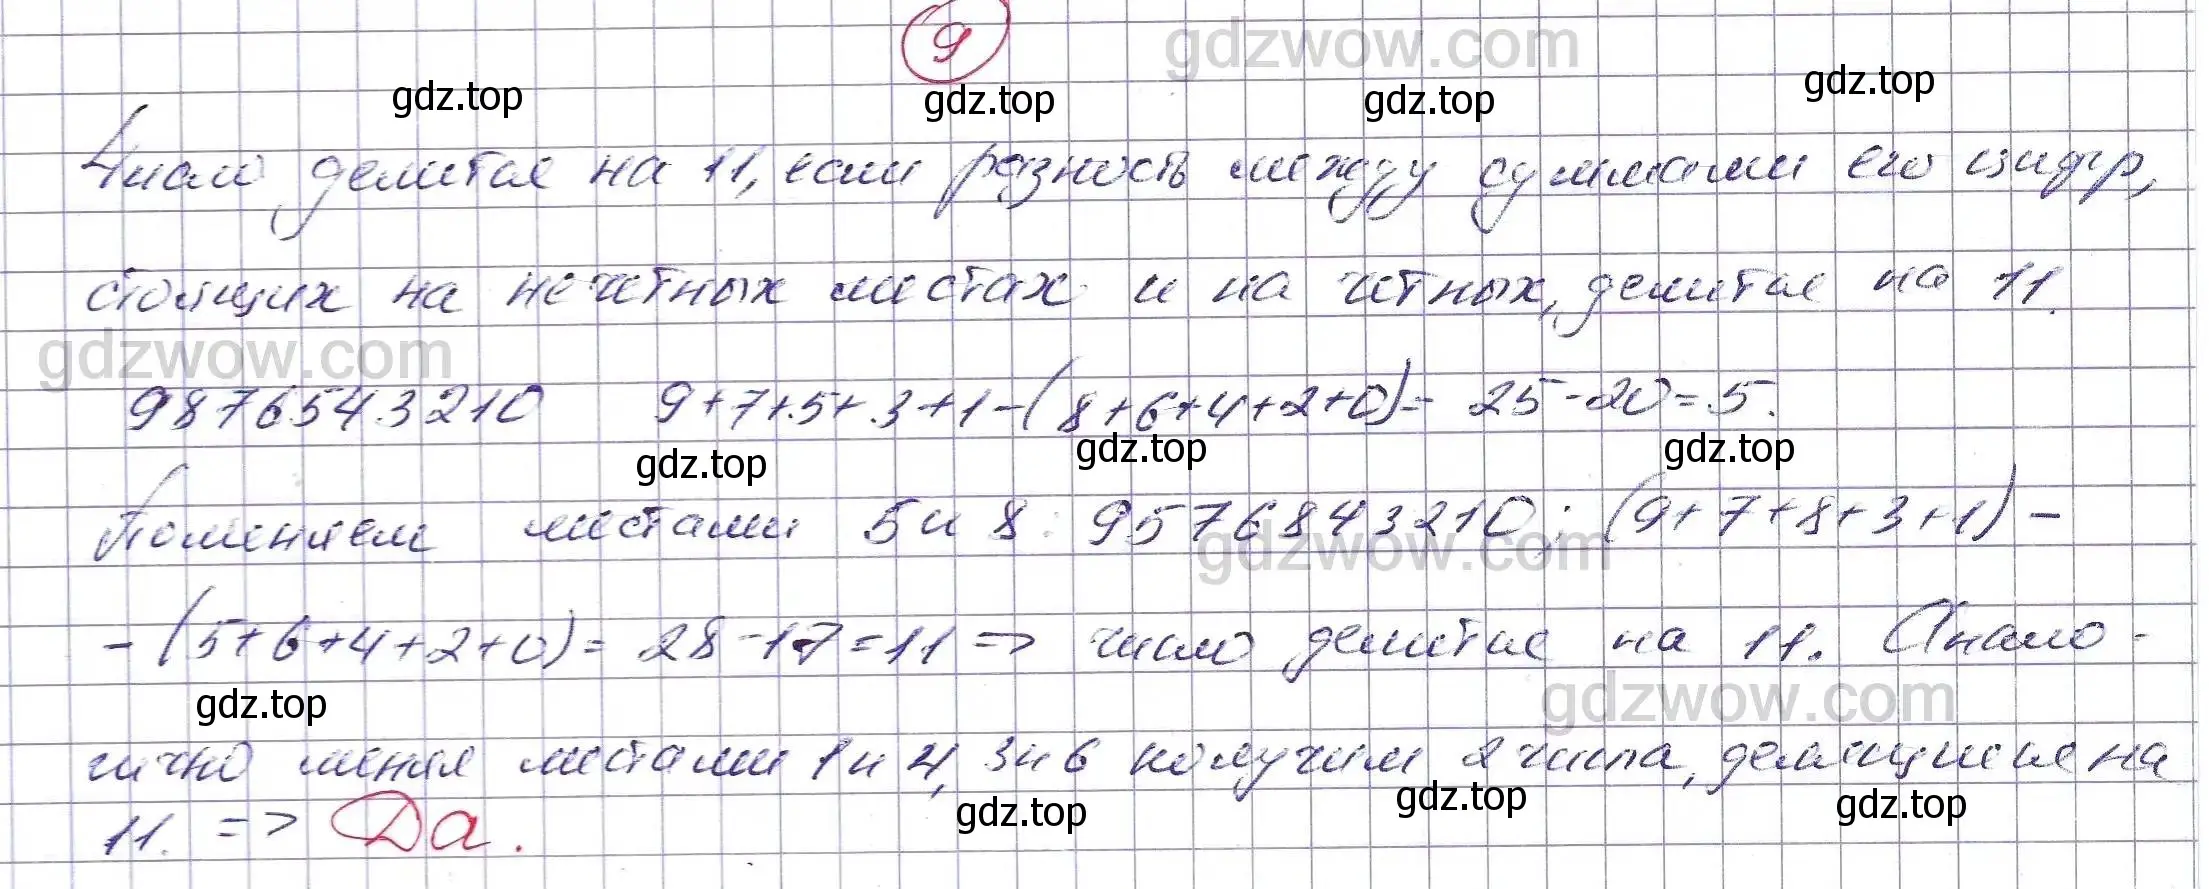 9
gdzwow.com
gdz.top gdz.top gdz.top gdz.top
Число делится на 11, если разность между суммами его цифр,
стоящих на нечетных местах и на четных, делится на 11.
gdzwow.com
9876543210 9+7+5+3+1-(8+6+4+2+0)= 25-20=5.
gdz.top gdz.top gdz.top
Поменяем местами 5 и 8: 9576843210; (9+7+8+3+1)-
gdzwow.com
-(5+6+4+2+0)= 28-17=11 => число делится на 11. Анало-
gdz.top gdzwow.com
гично меняя местами 1 и 4, 3 и 6 получим 2 числа, делящиеся на
gdz.top gdz.top gdz.top
11. => Да.